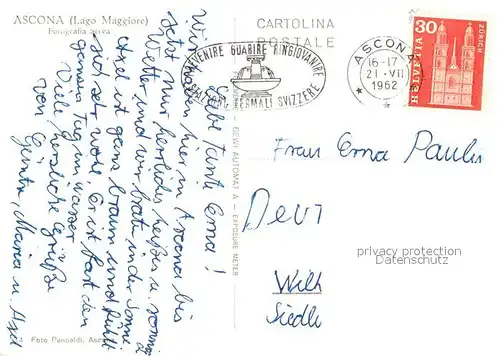 ASCONA (Lago Maggiore)
Fotografia aerea
CARTOLINA
POSTALE
PREVENIRE GUARIRE RINGIOVANIRE
TERMALI SVIZZERE
ASCONA
16-17
21.-VII
1962
30
HELVETIA
ZÜRICH
Liebe Tante Erna!
Wir sind hier in Ascona bis
jetzt nur herrliches heißes u. sonniges
Wetter und wir braten in der Sonne.
Axel ist ganz braun und fühlt
sich sehr wohl. Er ist fast den
ganzen Tag im Wasser.
Viele, herzliche Grüße
von Günter, Maria u. Axel
GEWI AUTOMAT A — EXPOSURE METER
Foto Pancaldi, Asc
Frau Erna Paulus
privacy protection
Datenschutz